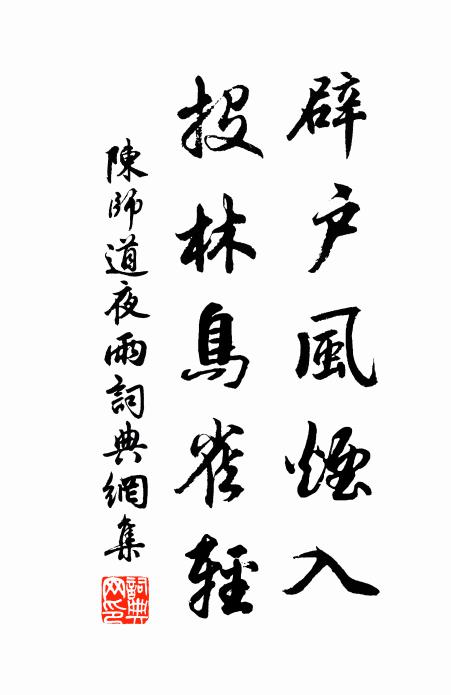 辟户風煙入
投林鳥雀輕
陳師道夜雨詞典網集
詞典網印